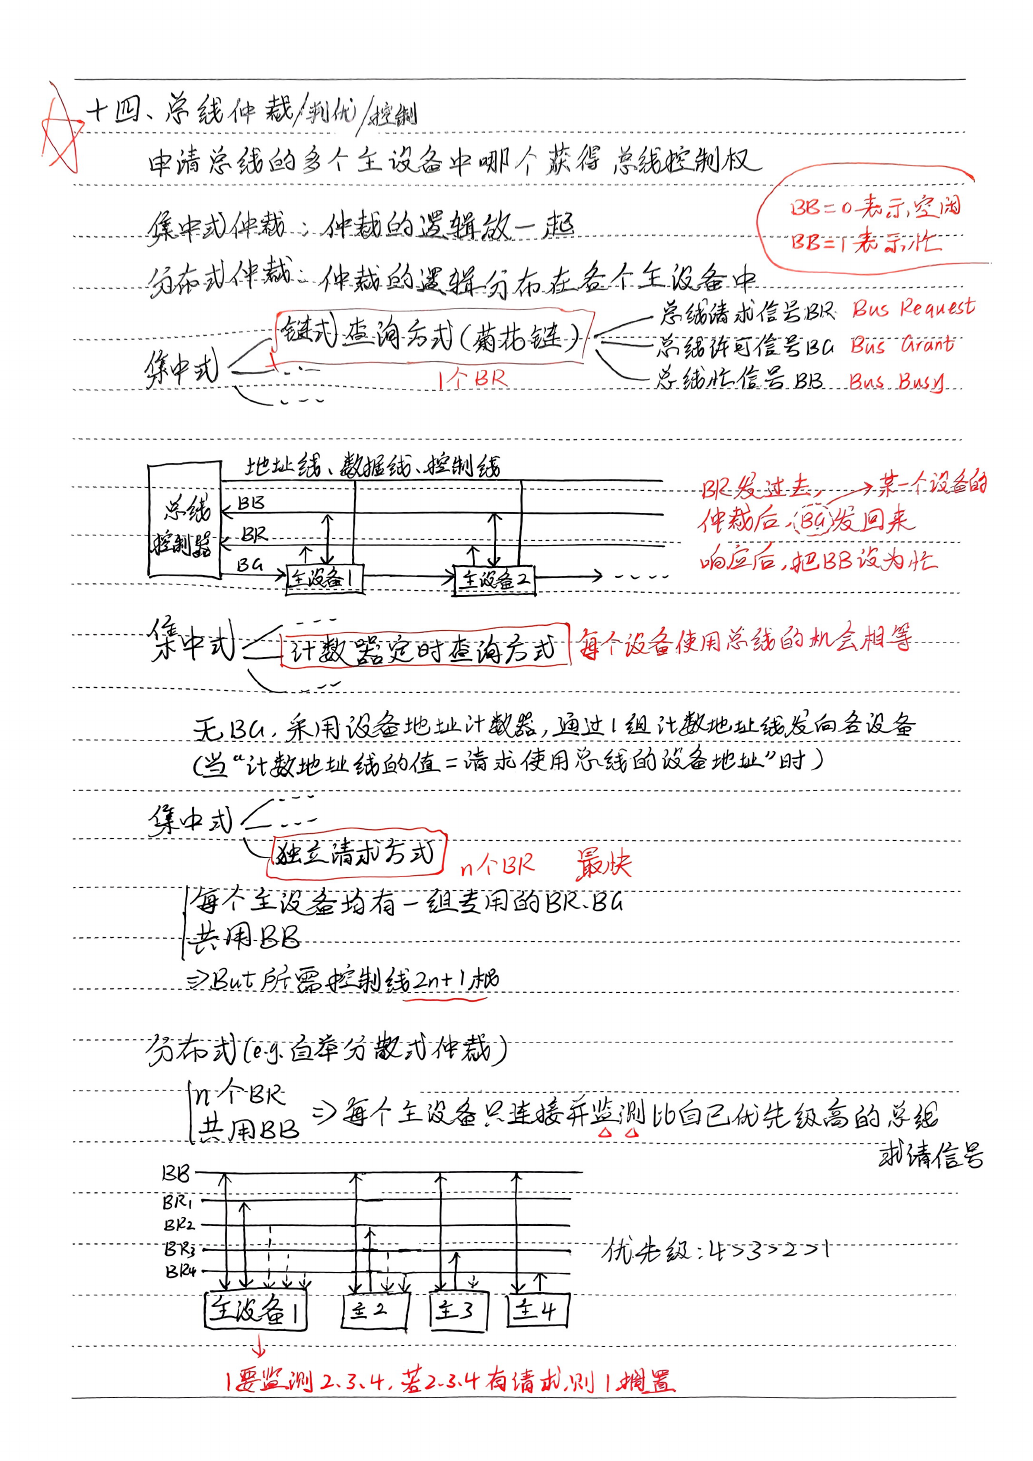 十四、总线仲裁/判优/控制
申请总线的多个主设备中哪个获得总线控制权
BB=0表示空闲
BB=1表示忙
集中式仲裁:仲裁的逻辑放一起
分布式仲裁:仲裁的逻辑分布在各个主设备中
集中式
链式查询方式(菊花链)
1个BR
总线请求信号BR Bus Request
总线许可信号BG Bus Grant
总线忙信号BB Bus Busy
地址线、数据线、控制线
总线
控制器
BB
BR
BG
主设备1
主设备2
BR发过去,→某一个设备的
仲裁后,BG发回来
响应后,把BB设为忙
集中式
计数器定时查询方式 每个设备使用总线的机会相等
无BG,采用设备地址计数器,通过1组计数地址线发向各设备
(当“计数地址线的值=请求使用总线的设备地址”时)
集中式
独立请求方式 n个BR 最快
每个主设备均有一组专用的BR、BG
共用BB
⇒But所需控制线2n+1根
分布式(e.g.自举分散式仲裁)
n个BR
共用BB
⇒每个主设备只连接并监测比自己优先级高的总线
求请信号
BB
BR1
BR2
BR3
BR4
主设备1
主2
主3
主4
优先级:4>3>2>1
1要监测2、3、4,若2、3、4有请求,则1搁置